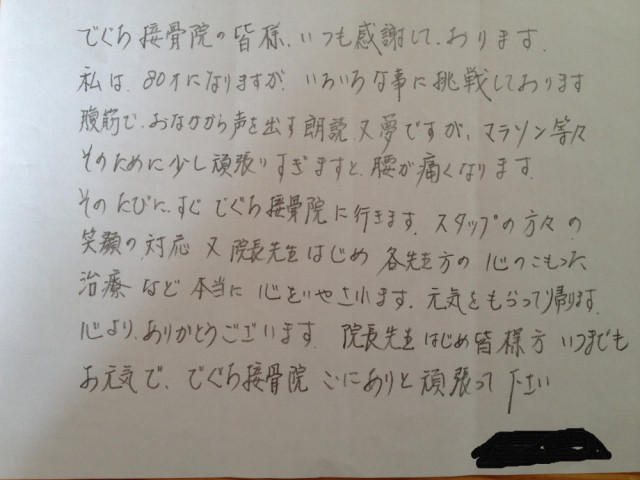 でぐち接骨院の皆様、いつも感謝して、おります、
私は、80才になりますが、いろいろな事に挑戦しております
腹筋で、おなかから声を出す朗読、又夢ですが、マラソン等々
そのために少し頑張りすぎますと、腰が痛くなります、
そのたびに、すぐでぐち接骨院に行きます、スタップの方々の
笑顔の対応又院長先生はじめ各先生方の心のこもった
治療など本当に心をいやされます、元気をもらって帰ります、
心より、ありがとうございます、院長先生はじめ皆様方いつまでも
お元気で、でぐち接骨院ここにありと頑張って下さい